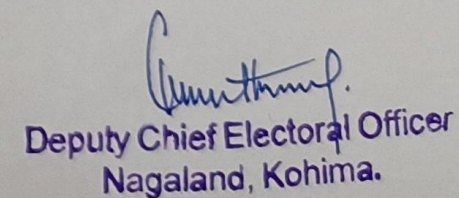 Deputy Chief Electoral Officer
Nagaland, Kohima.